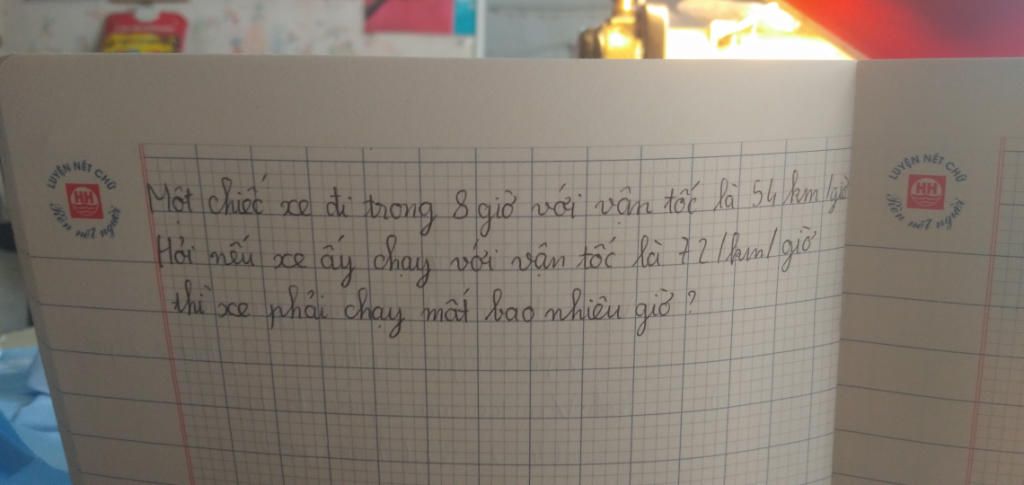 LUYỆN NÉT CHỮ
HH
Rèn nết người
Một chiếc xe đi trong 8 giờ với vận tốc là 54 km/giờ
Hỏi nếu xe ấy chạy với vận tốc là 72 km/giờ
thì xe phải chạy mất bao nhiêu giờ?
LUYỆN NÉT CHỮ
HH
Rèn nết người